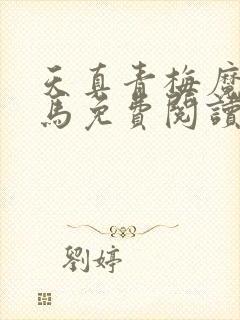 天真青梅魔
馬免費閱讀
劉婷